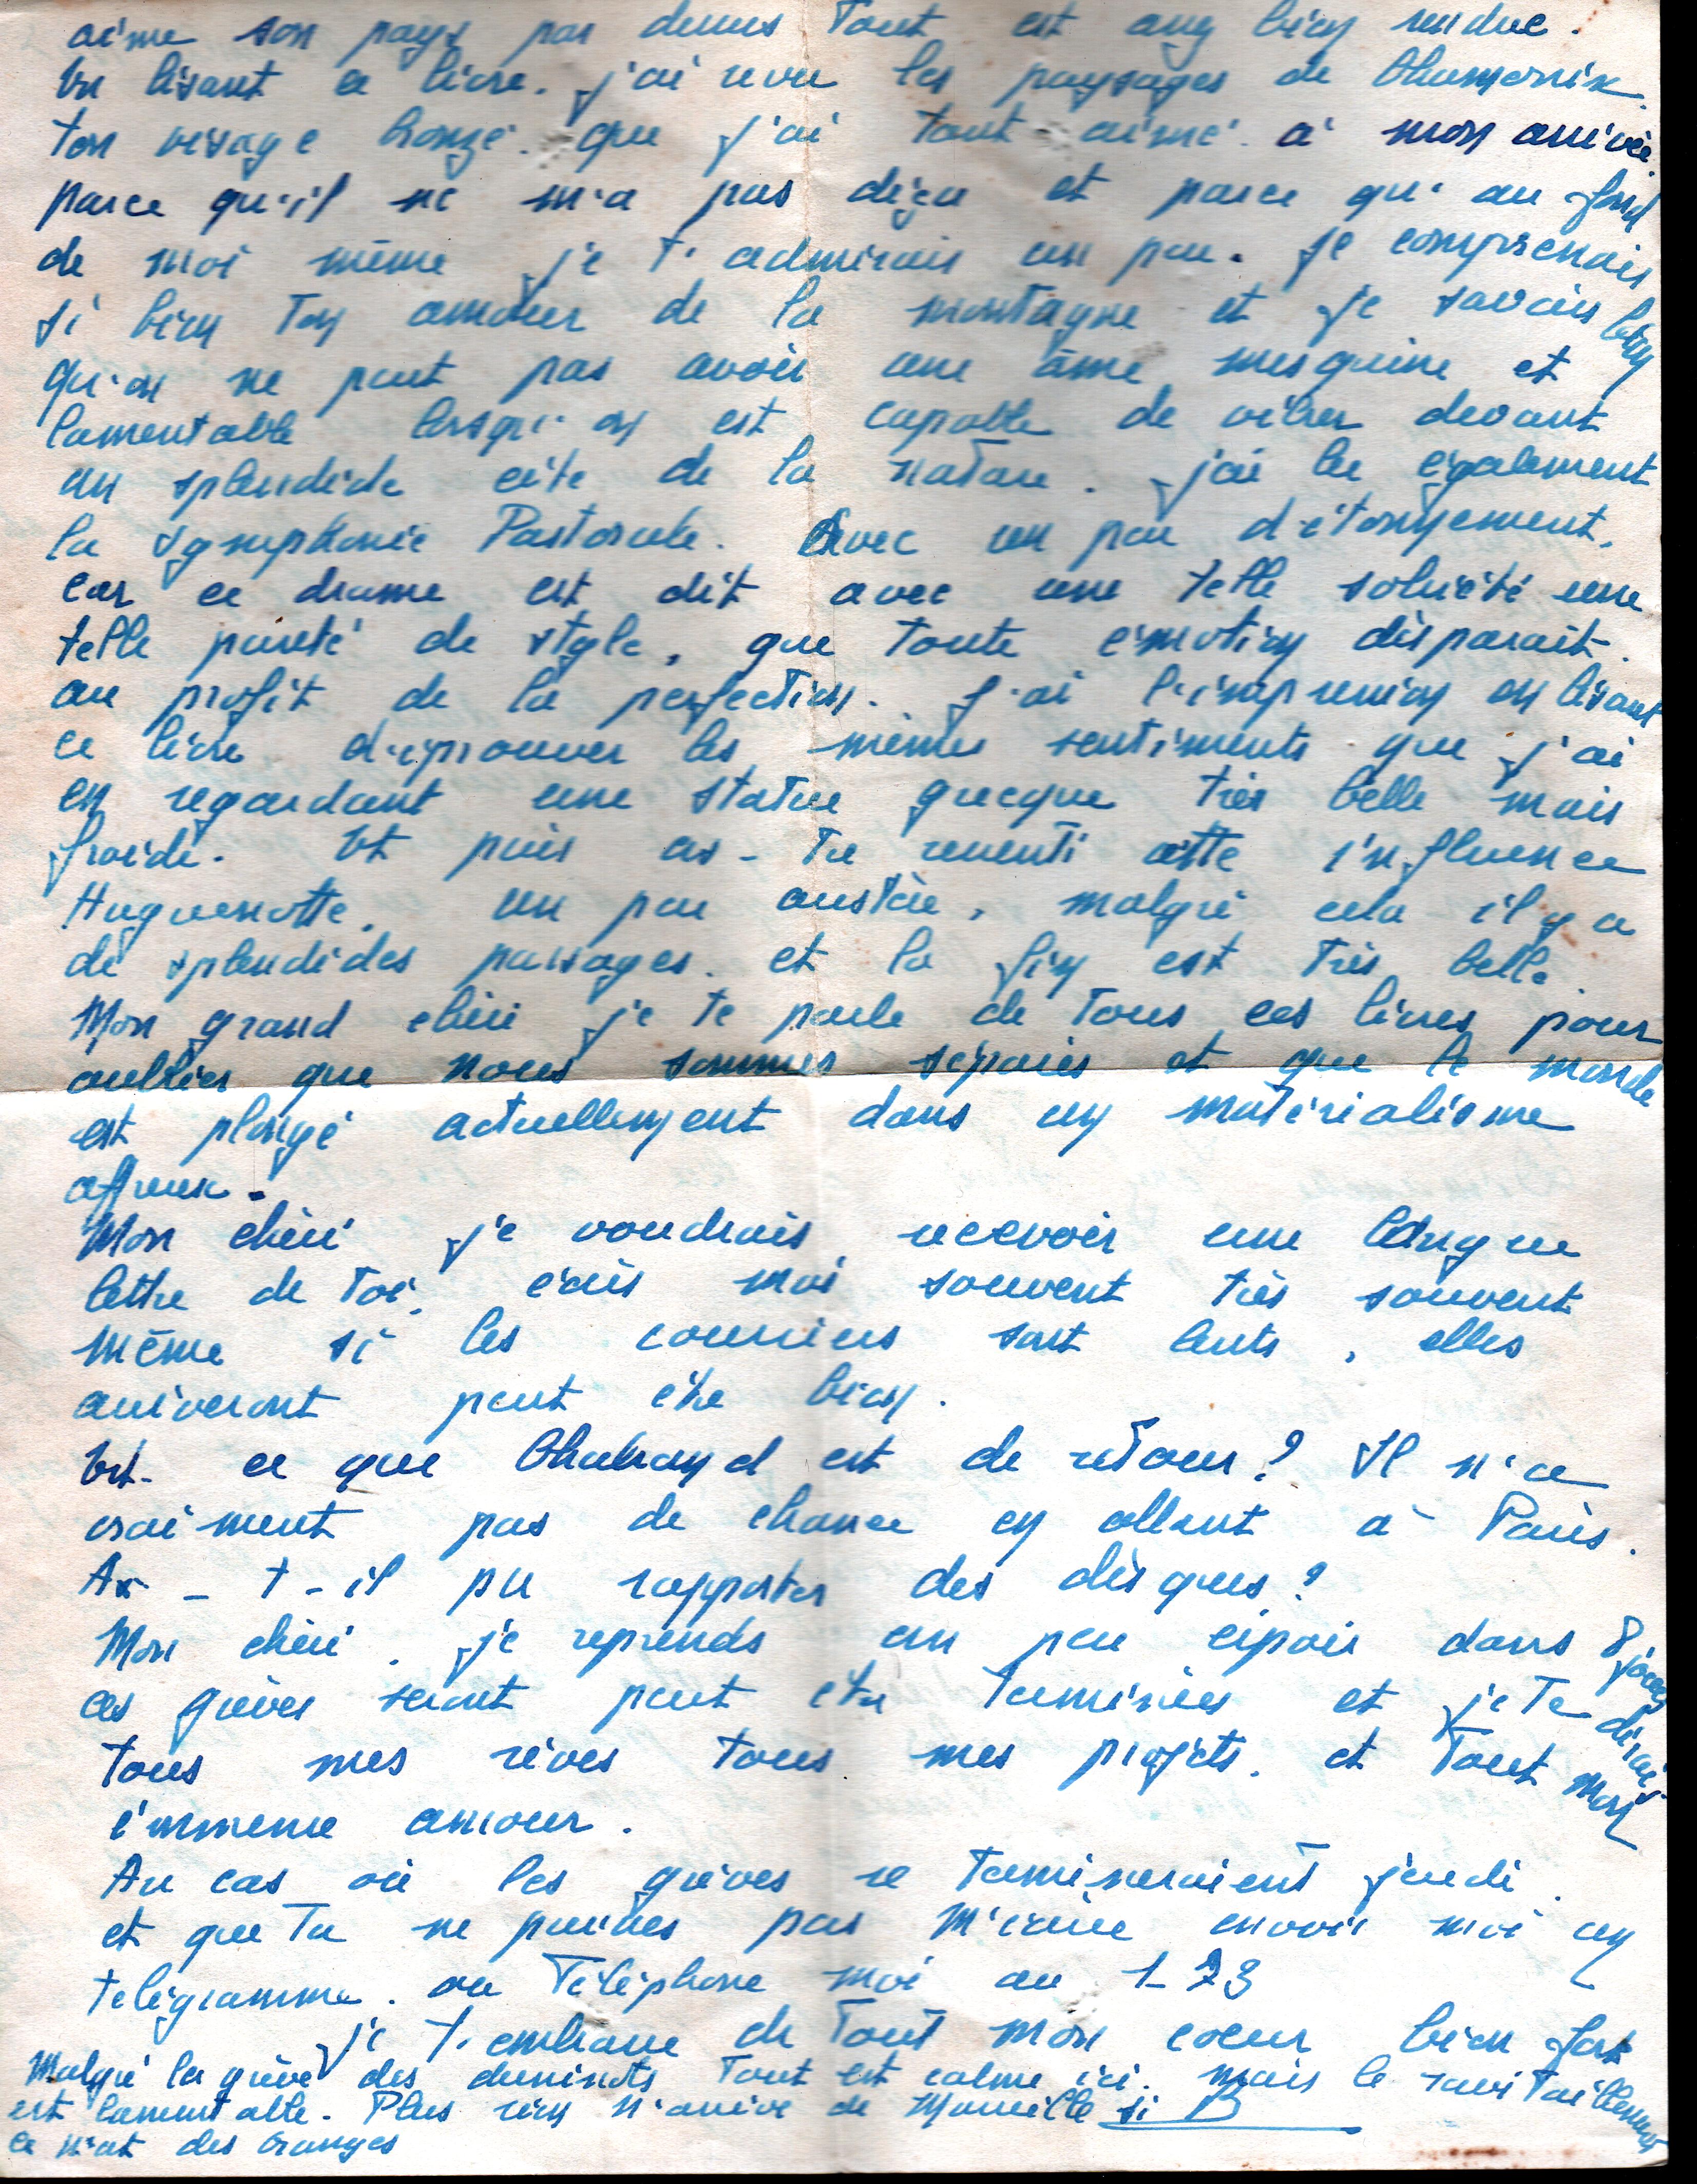 aime son pays par dessus tout est aussi bien rendue.
En lisant ce livre. j'ai revu les paysages de
ton visage bronzé. que j'ai tant aimé. à mon arrivée.
parce qu'il ne m'a pas déçu et parce qu'au fond
de moi même je t'admirais un peu. je comprenais
si bien ton amour de la montagne et je savais bien
qu'on ne peut pas avoir une âme mesquine et
lamentable lorsqu'on est capable de vibrer devant
un splendide site de la nature. j'ai lu également
la symphonie Pastorale. Avec un peu d'étonnement.
car ce drame est dit avec une telle sobriété une
telle pureté de style, que toute émotion disparait.
au profit de la perfection. J'ai l'impression en lisant
ce livre d'éprouver les mêmes sentiments que j'ai
en regardant une statue grecque très belle mais
froide. Et puis as-tu ressenti cette influence
Huguenotte. un peu austère, malgré cela il y a
de splendides passages. et la fin est très belle.
Mon grand chéri je te parle de tous ces livres pour
oublier que nous sommes séparés et que le monde
est plongé actuellement dans un matérialisme
affreux.
Mon chéri je voudrais recevoir une longue
lettre de toi, écris moi souvent très souvent
même si les courriers sont lents, elles
arriveront peut être bien.
Est-ce que est de retour? Il n'a
vraiment pas de chance en allant à Paris.
A-t-il pu rapporter des disques?
Mon chéri. je reprends un peu espoir dans 8 jours
ces grèves seront peut être terminées et je te dirai
tous mes rêves tous mes projets. et tout mon
immense amour.
Au cas où les grèves se termineraient jeudi.
et que tu ne puisses pas m'écrire envoie moi un
télégramme. ou Téléphone moi au 173
je t'embrasse de tout mon coeur bien fort
Malgré la grève des cheminots tout est calme ici. mais le ravitaillement
est lamentable. Plus rien n'arrive de Marseille si B
ce n'est des oranges